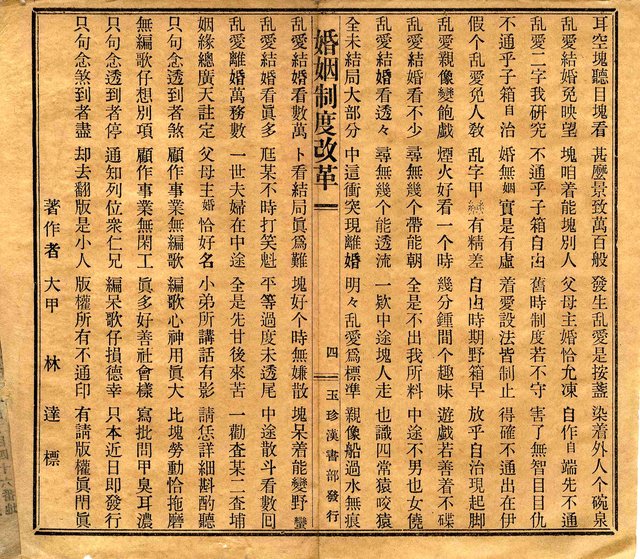 耳空塊聽目塊看 甚麼景致萬百般 發生乱愛是按盞 染着外人个碗泉
乱愛結婚免映望 塊咱着能塊別人 父母主婚恰允凍 自作自端先不通
乱愛二字我研究 不通乎子箱自由 舊時制度若不守 害了無智目目仇
不通乎子箱自治 婚無姻實是有虛 着愛設法皆制止 得確不通出在伊
假个乱愛免人敎 乱字甲有精差 自由時期野箱早 放乎自治現起脚
乱愛親像變飽戲 煙火好看一個時 幾分鍾間个趣味 遊戲若善着不碟
乱愛結婚看不少 尋無幾个帶能朝 全是不出我所料 中途不男也女僥
乱愛結婚看透々 尋無幾个能透流 一欵中途塊人走 也識四常猿咬猿
全未結局大部分 中這衝突現離婚 明々乱愛爲標準 親像船過水無痕
婚姻制度改革 四 玉珍漢書部發行
乱愛結婚看數萬 卜看結局眞爲難 塊好个時無嫌散 塊呆着能變野蠻
乱愛結婚看眞多 尫某不時打笑魁 平等過度未透尾 中途散斗看數囘
乱愛離婚萬務數 一世夫婦在中途 全是先甘後來苦 一勸查某二查埔
姻緣總廣天註定 父母主婚恰好名 小弟所講話有影 請恁詳細斟酌聽
只句念透到者煞 顧作事業無編歌 編歌心神用眞大 比塊勞動恰拖磨
無編歌仔想別項 顧作事業無閑工 眞多好善社會樣 寫批問甲臭耳濃
只句念透到者停 通知列位衆仁兄 編呆歌仔損德幸 只本近日卽發行
只句念煞到者盡 却去翻版是小人 版權所有不通印 有請版權眞閂眞
著作者 大甲 林達標